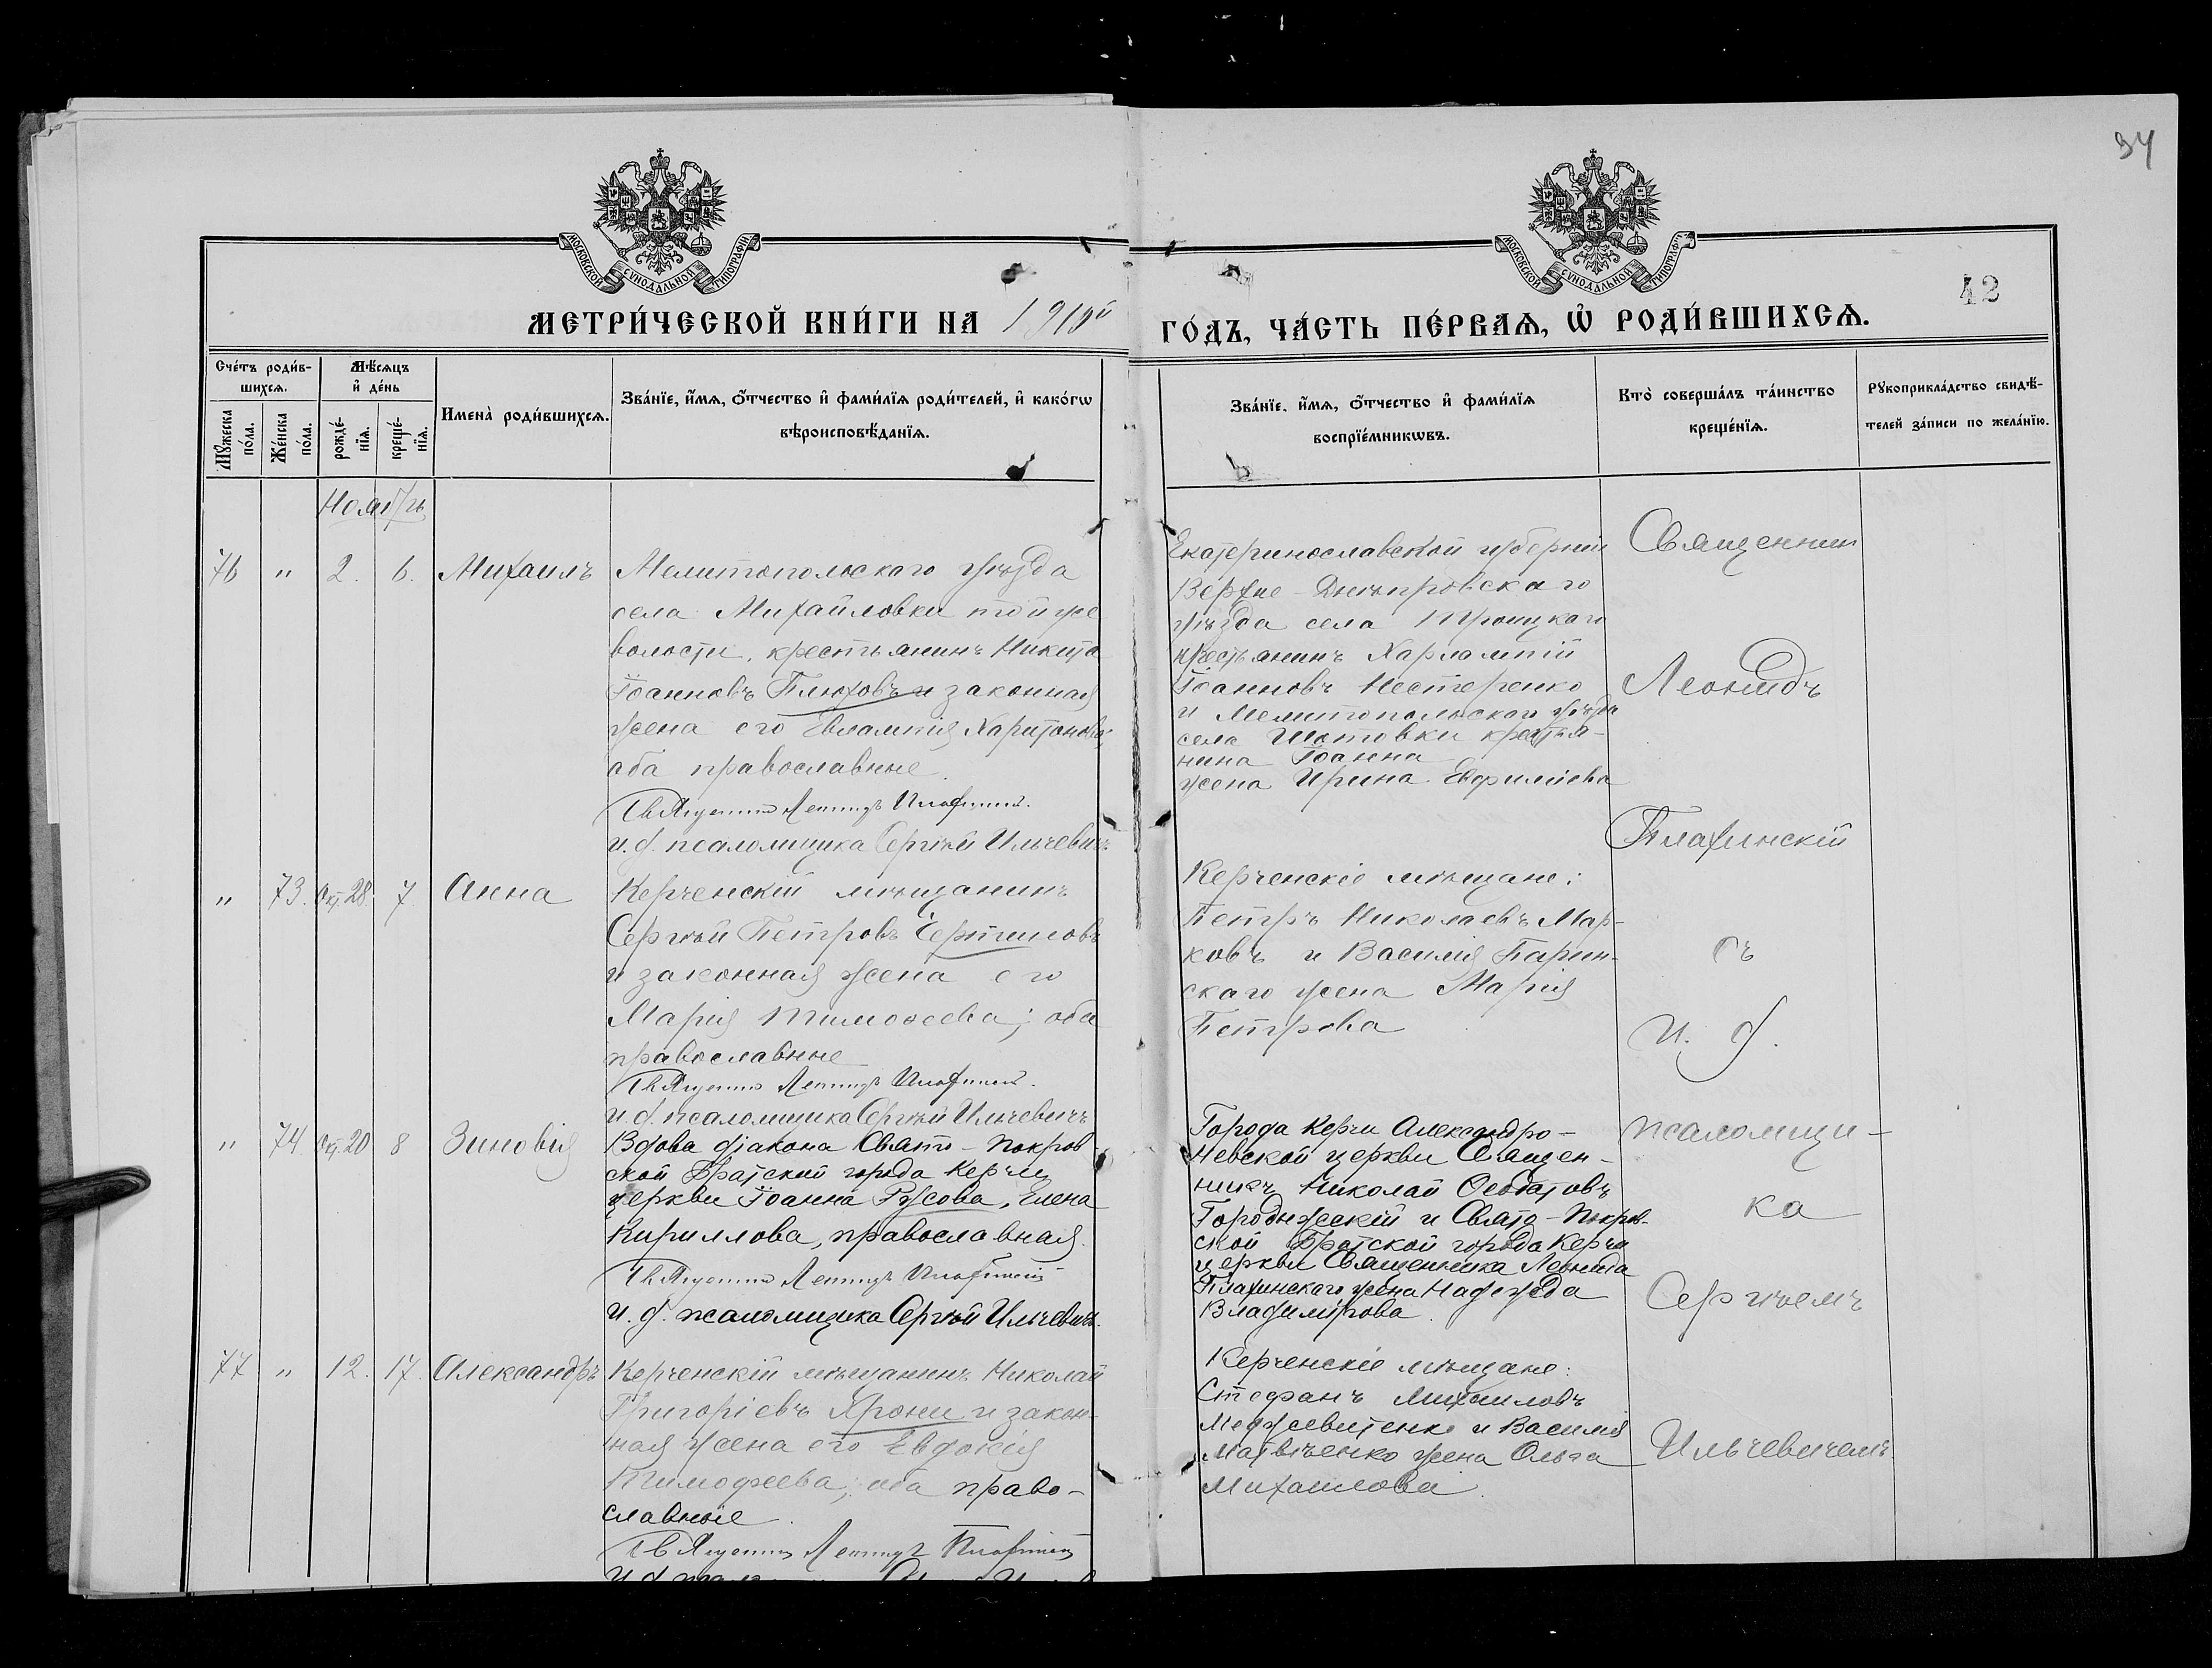 34
МОСКОВСКОЙ СѴНОДАЛЬНОЙ ТИПОГРАФІИ
МОСКОВСКОЙ СѴНОДАЛЬНОЙ ТИПОГРАФІИ
42
МЕТРИ́ЧЕСКОЙ КНИ́ГИ НА 1910й
ГО́ДЪ, ЧА́СТЬ ПЕ́РВАѦ, Ѡ҆ РОДИ́ВШИХСѦ.
Сче́тъ роди́в-
шихсѧ.
Мѣ́сѧцъ
и҆ де́нь
Мꙋ́жеска
по́ла.
Же́нска
по́ла.
рожде́-
нїѧ.
креще́-
нїѧ.
Имена̀ роди́вшихсѧ.
Зва́нїе, и҆́мѧ, ѻ҆́тчество и҆ фами́лїѧ роди́телей, и҆ како́гѡ
вѣроисповѣ́данїѧ.
Зва́нїе, и҆́мѧ, ѻ҆́тчество и҆ фами́лїѧ
воспрїе́мникѡвъ.
Кто̀ соверша́лъ та́инство
креще́нїѧ.
Рꙋкоприкла́дство свидѣ́-
телей за́писи по жела́нїю.
Ноябрь
76 " 2. 6. Михаилъ
Мелитопольскаго уѣзда
села Михайловки той же
волости, крестьянинъ Никита
Іоанновъ Плюховъ и законная
жена его Евлампія Харитонова,
оба православные.
Священникъ Леонидъ
и. д. псаломщика Сергѣй Ильчевичъ.
Екатеринославской губерніи
Верхне-Днѣпровскаго
уѣзда села Троицкаго
крестьянинъ Харлампій
Іоанновъ Нестеренко
и Мелитопольскаго уѣзда
села крестья-
нина Іоанна
жена Ирина Евфиміева
" 73. Окт. 28. 7. Анна
Керченскій мѣщанинъ
Сергѣй Петровъ
и законная жена его
Марія Тимоѳеева; оба
православные
Священникъ Леонидъ
и. д. псаломщика Сергѣй Ильчевичъ
Керченскіе мѣщане:
Петръ Николаевъ Мар-
ковъ и Василія Парин-
скаго жена Марія
Петрова
" 74 Окт. 20 8 Зиновія
Вдова діакона Свято-Покров-
ской Братской города Керчи
церкви Іоанна Русова, Елена
Кириллова, православная.
Священникъ Леонидъ
и. д. псаломщика Сергѣй Ильчевичъ.
Города Керчи Александро-
Невской церкви Священ-
никъ Николай
и Свято-Покров-
ской Братской города Керчи
церкви Священника Леонида
Плахинскаго жена Надежда
Владимірова.
77 " 12. 17. Александръ
Керченскій мѣщанинъ Николай
Григоріевъ Ярони и закон-
ная жена его Евдокія
Тимофеева; оба право-
славные.
Священникъ Леонидъ
Керченскіе мѣщане:
Стефанъ Михаиловъ
и Василія
Матвѣенко жена Ольга
Михаилова.
Священникъ
Леонидъ
Плахинскій
съ
и. д.
псаломщи-
ка
Сергѣемъ
Ильчевичемъ